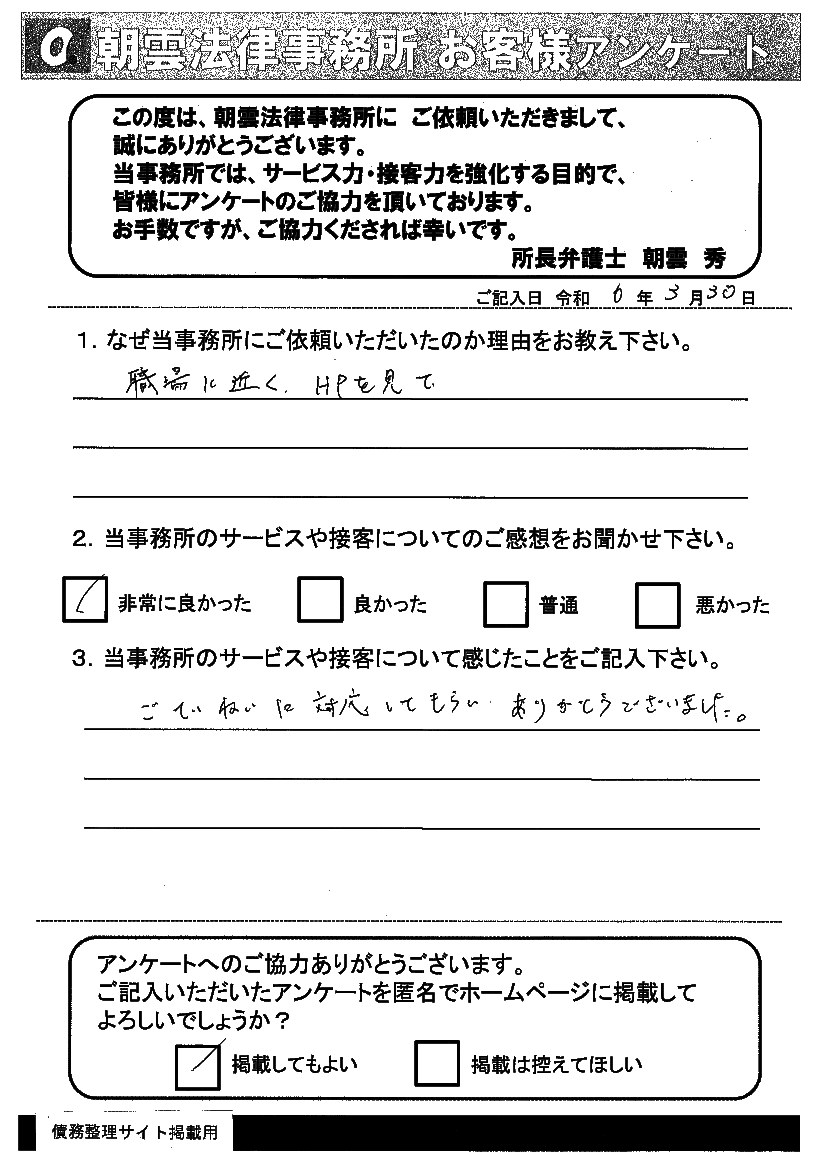 a 朝雲法律事務所 お客様アンケート
この度は、朝雲法律事務所に ご依頼いただきまして、
誠にありがとうございます。
当事務所では、サービス力・接客力を強化する目的で、
皆様にアンケートのご協力を頂いております。
お手数ですが、ご協力くだされば幸いです。
所長弁護士 朝雲 秀
ご記入日 令和 6 年 3 月 30 日
1. なぜ当事務所にご依頼いただいたのか理由をお教え下さい。
職場に近く、HPを見て
2. 当事務所のサービスや接客についてのご感想をお聞かせ下さい。
非常に良かった 良かった 普通 悪かった
3. 当事務所のサービスや接客について感じたことをご記入下さい。
ごていねいに対応してもらい、ありがとうございました。
アンケートへのご協力ありがとうございます。
ご記入いただいたアンケートを匿名でホームページに掲載して
よろしいでしょうか？
掲載してもよい 掲載は控えてほしい
債務整理サイト掲載用